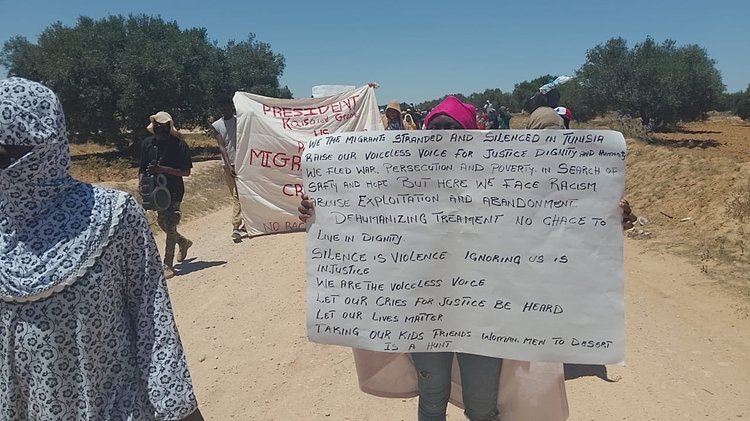 PRESIDENT
WE
MIGRAN
CR
NO RAC
WE THE MIGRANTS STRANDED AND SILENCED IN TUNISIA
RAISE OUR VOICELESS VOICE FOR JUSTICE DIGNITY AND
WE FLED WAR, PERSECUTION AND POVERTY IN SEARCH OF
SAFTY AND HOPE BUT HERE WE FACE RACISM
ABUSE EXPLOITATION AND ABANDONMENT
DEHUMANIZING TREAMENT NO CHACE TO
LIVE IN DIGNITY.
SILENCE IS VIOLENCE IGNORING US IS
INJUSTICE
WE ARE THE VOICELESS VOICE
LET OUR CRIES FOR JUSTICE BE HEARD
LET OUR LIVES MATTER
TAKING OUR KIDS FRIENDS WOMAN MEN TO DESERT
IS A HUNT